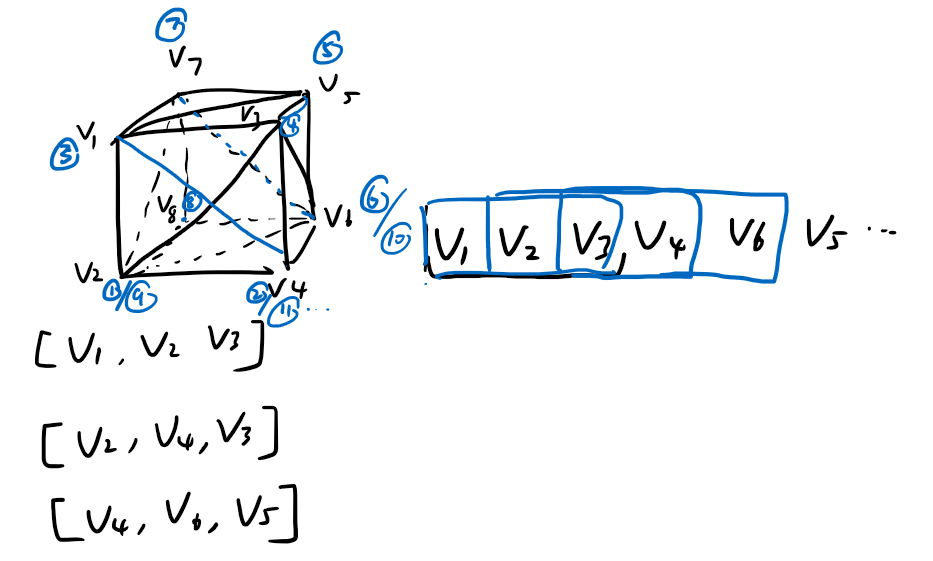 ⑦
V7
⑤
V5
③ V1
V3
④
V8 ⑧
V6
⑥/⑩
V2
①/⑨
V4
②/⑪ ...
V1 V2 V3, V4 V6 V5 ...
[V1, V2 V3]
[V2, V4, V3]
[V4, V6, V5]